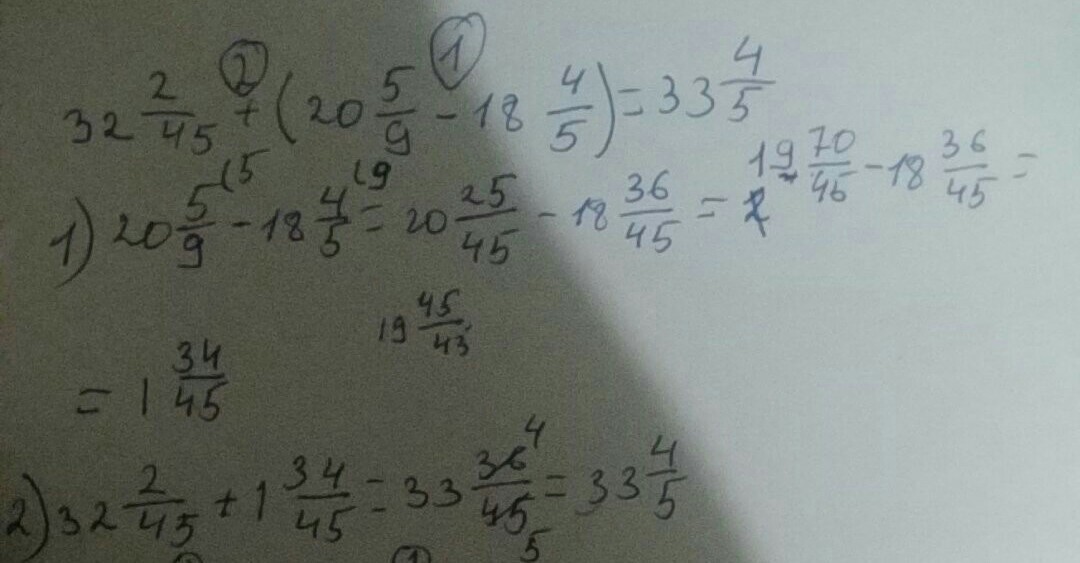 32 2/45 + (20 5/9 - 18 4/5) = 33 4/5
② ①
1) 20 5/9 (5 - 18 4/5 (9 = 20 25/45 - 18 36/45 = 19 70/45 - 18 36/45 =
19 45/45
= 1 34/45
2) 32 2/45 + 1 34/45 = 33 36/45 4 5 = 33 4/5